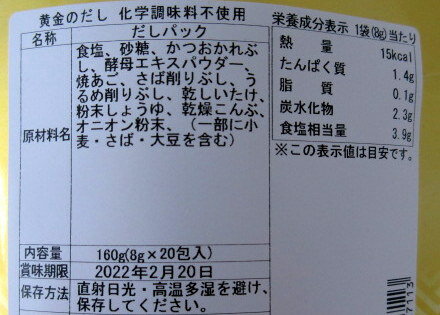 黄金のだし 化学調味料不使用
名称 だしパック
原材料名 食塩、砂糖、かつおかれぶ
し、酵母エキスパウダー、
焼あご、さば削りぶし、う
るめ削りぶし、乾しいたけ、
粉末しょうゆ、乾燥こんぶ、
オニオン粉末、（一部に小
麦・さば・大豆を含む）
内容量 160g(8g×20包入)
賞味期限 2022年2月20日
保存方法 直射日光・高温多湿を避け、
保存してください。
栄養成分表示 1袋(8g)当たり
熱量 15kcal
たんぱく質 1.4g
脂質 0.1g
炭水化物 2.3g
食塩相当量 3.9g
※この表示値は目安です。
7113